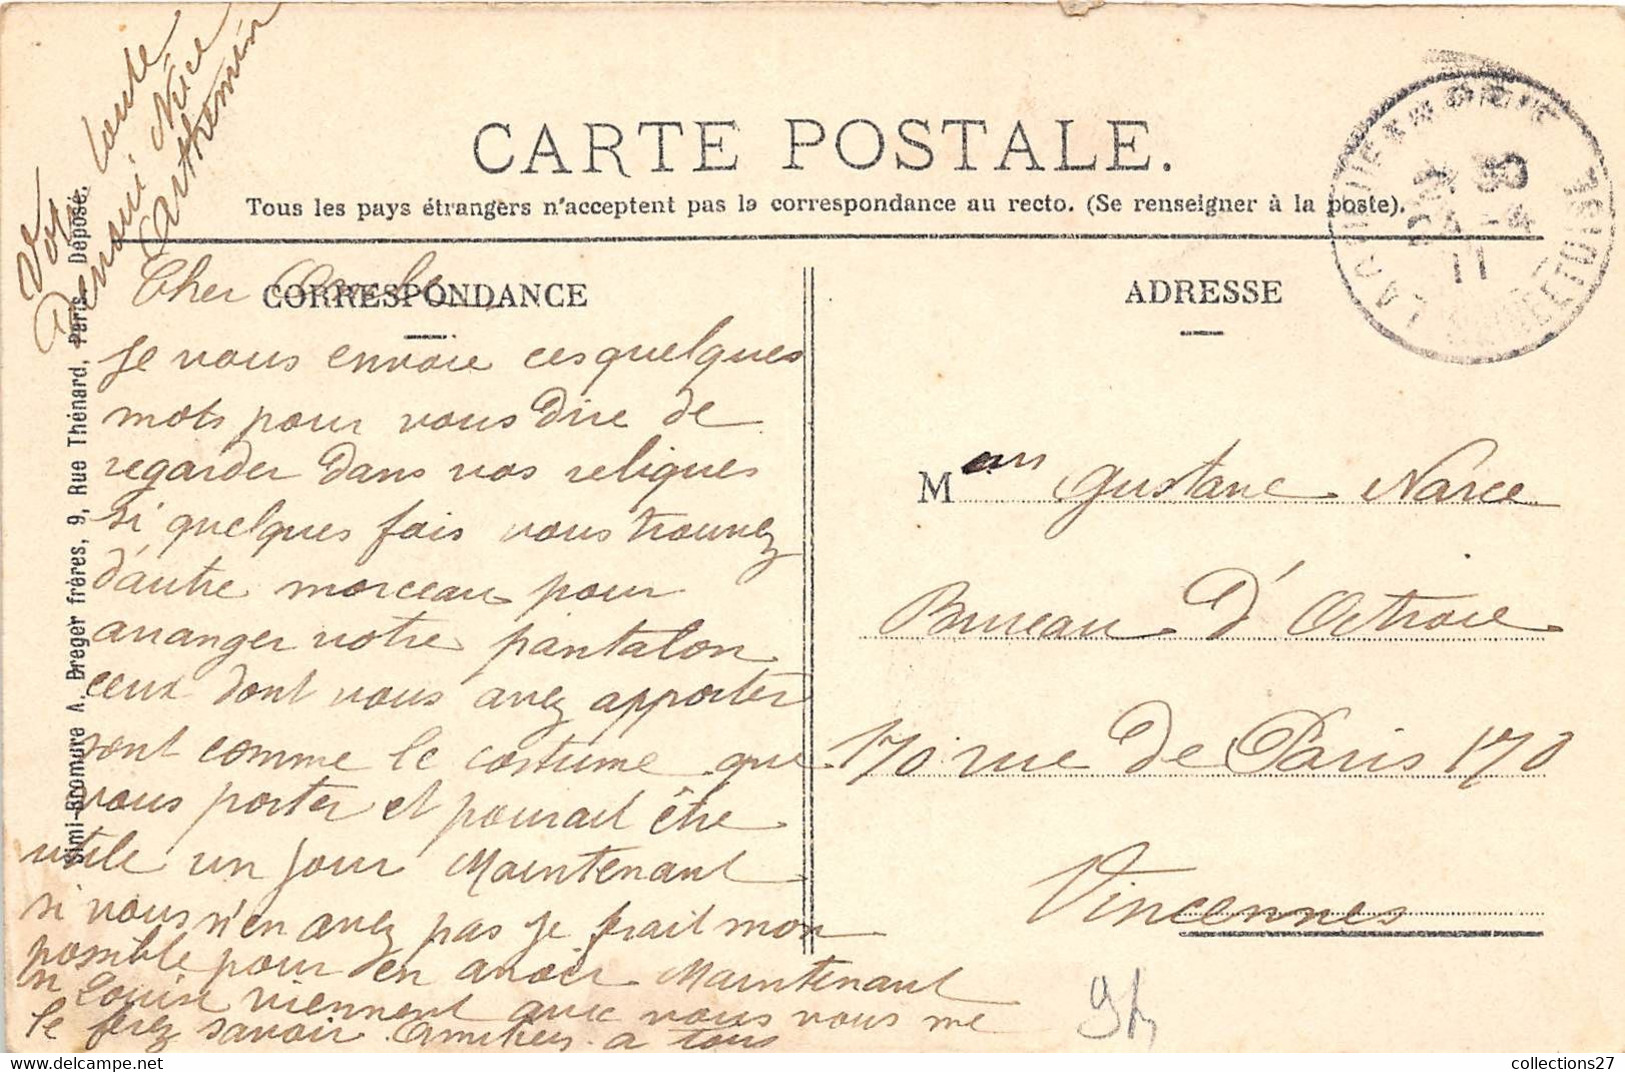 CARTE POSTALE.
Tous les pays étrangers n'acceptent pas la correspondance au recto. (Se renseigner à la poste).
CORRESPONDANCE
ADRESSE
Cher
Je vous envoie ces quelques
mots pour vous dire de
regarder dans vos reliques
si quelques fois vous trouvez
d'autre morceau pour
arranger votre pantalon
ceux dont vous avez apporter
sont comme le costume que
vous porter et pourait être
utile un jour Maintenant
si vous n'en avez pas je ferait mon
possible pour en avoir Maintenant
si Louise viennent avec vous vous me
le ferez savoir. Amitiers a tous
Votre toute
Devoué Nièce
Mon Gustave Narce
Bureau d'Octroie
170 rue de Paris 170
Vincennes
94
11
Simi-Bromure A. Breger frères, 9, Rue Thénard, Paris. Déposé.
collections27